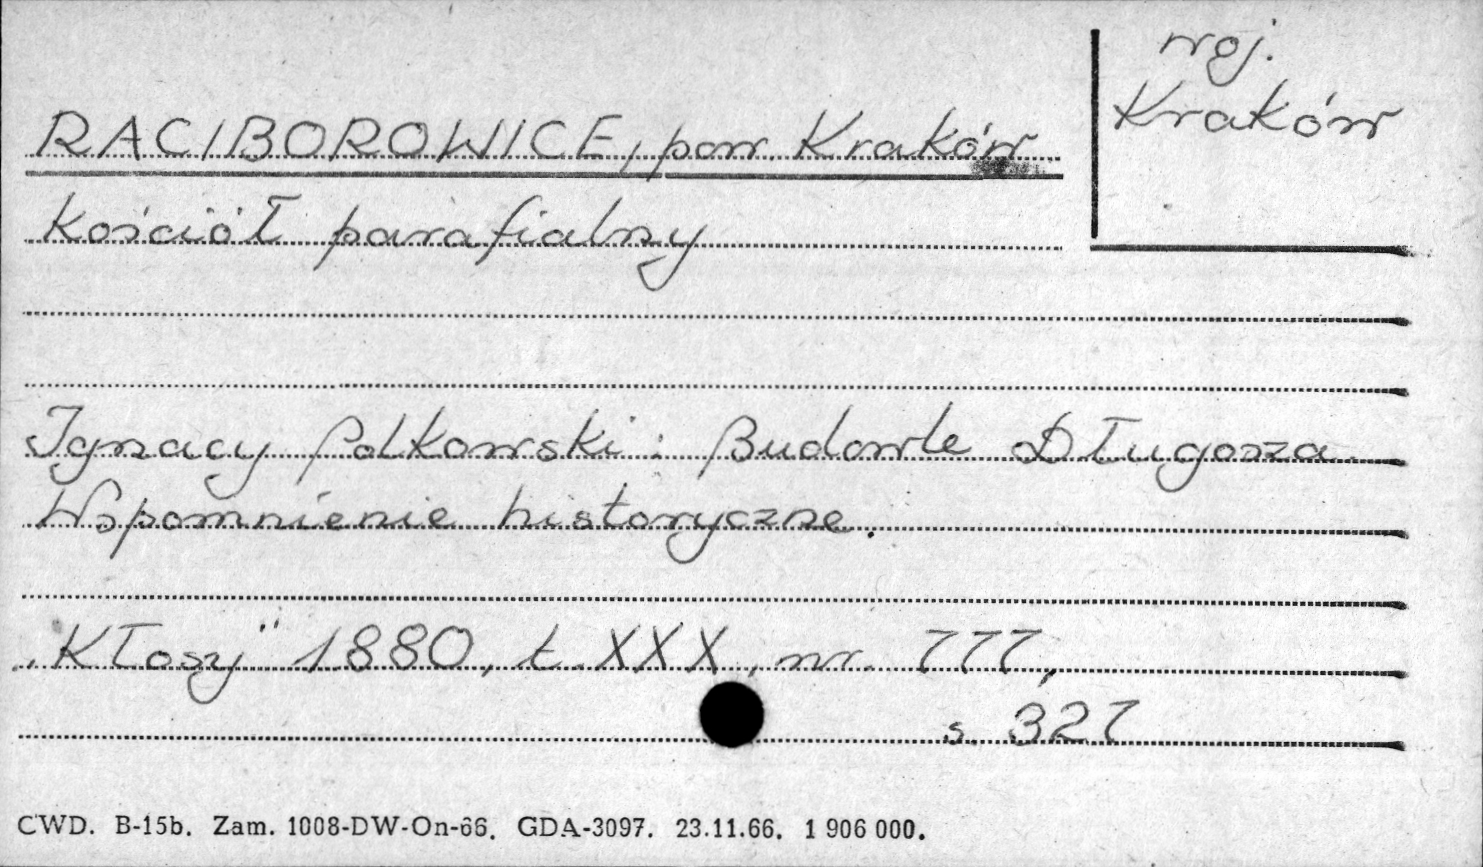 woj.
Kraków
RACIBOROWICE, pow Kraków
Kościół parafialny
Ignacy Polkowski: Budowle Długosza.
Wspomnienie historyczne.
„Kłosy" 1880, t. XXX, nr. 777,
s. 327
CWD. B-15b. Zam. 1008-DW-On-66. GDA-3097. 23.11.66. 1 906 000.